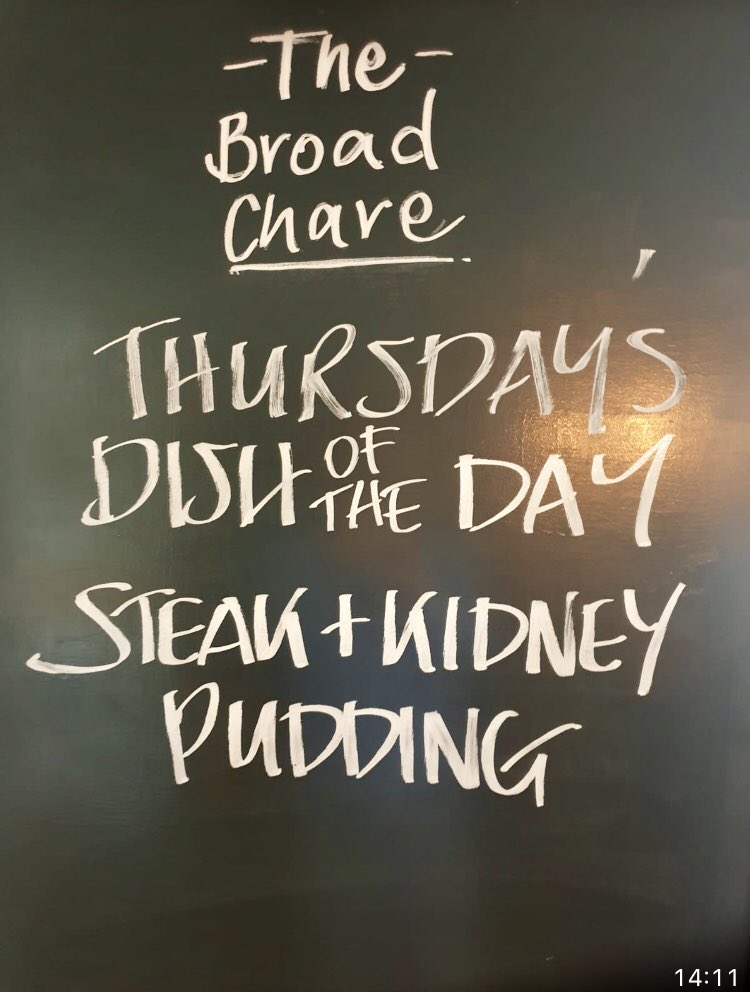 -The-
Broad
Chare
THURSDAY'S
DISH OF THE DAY
STEAK + KIDNEY
PUDDING
14:11